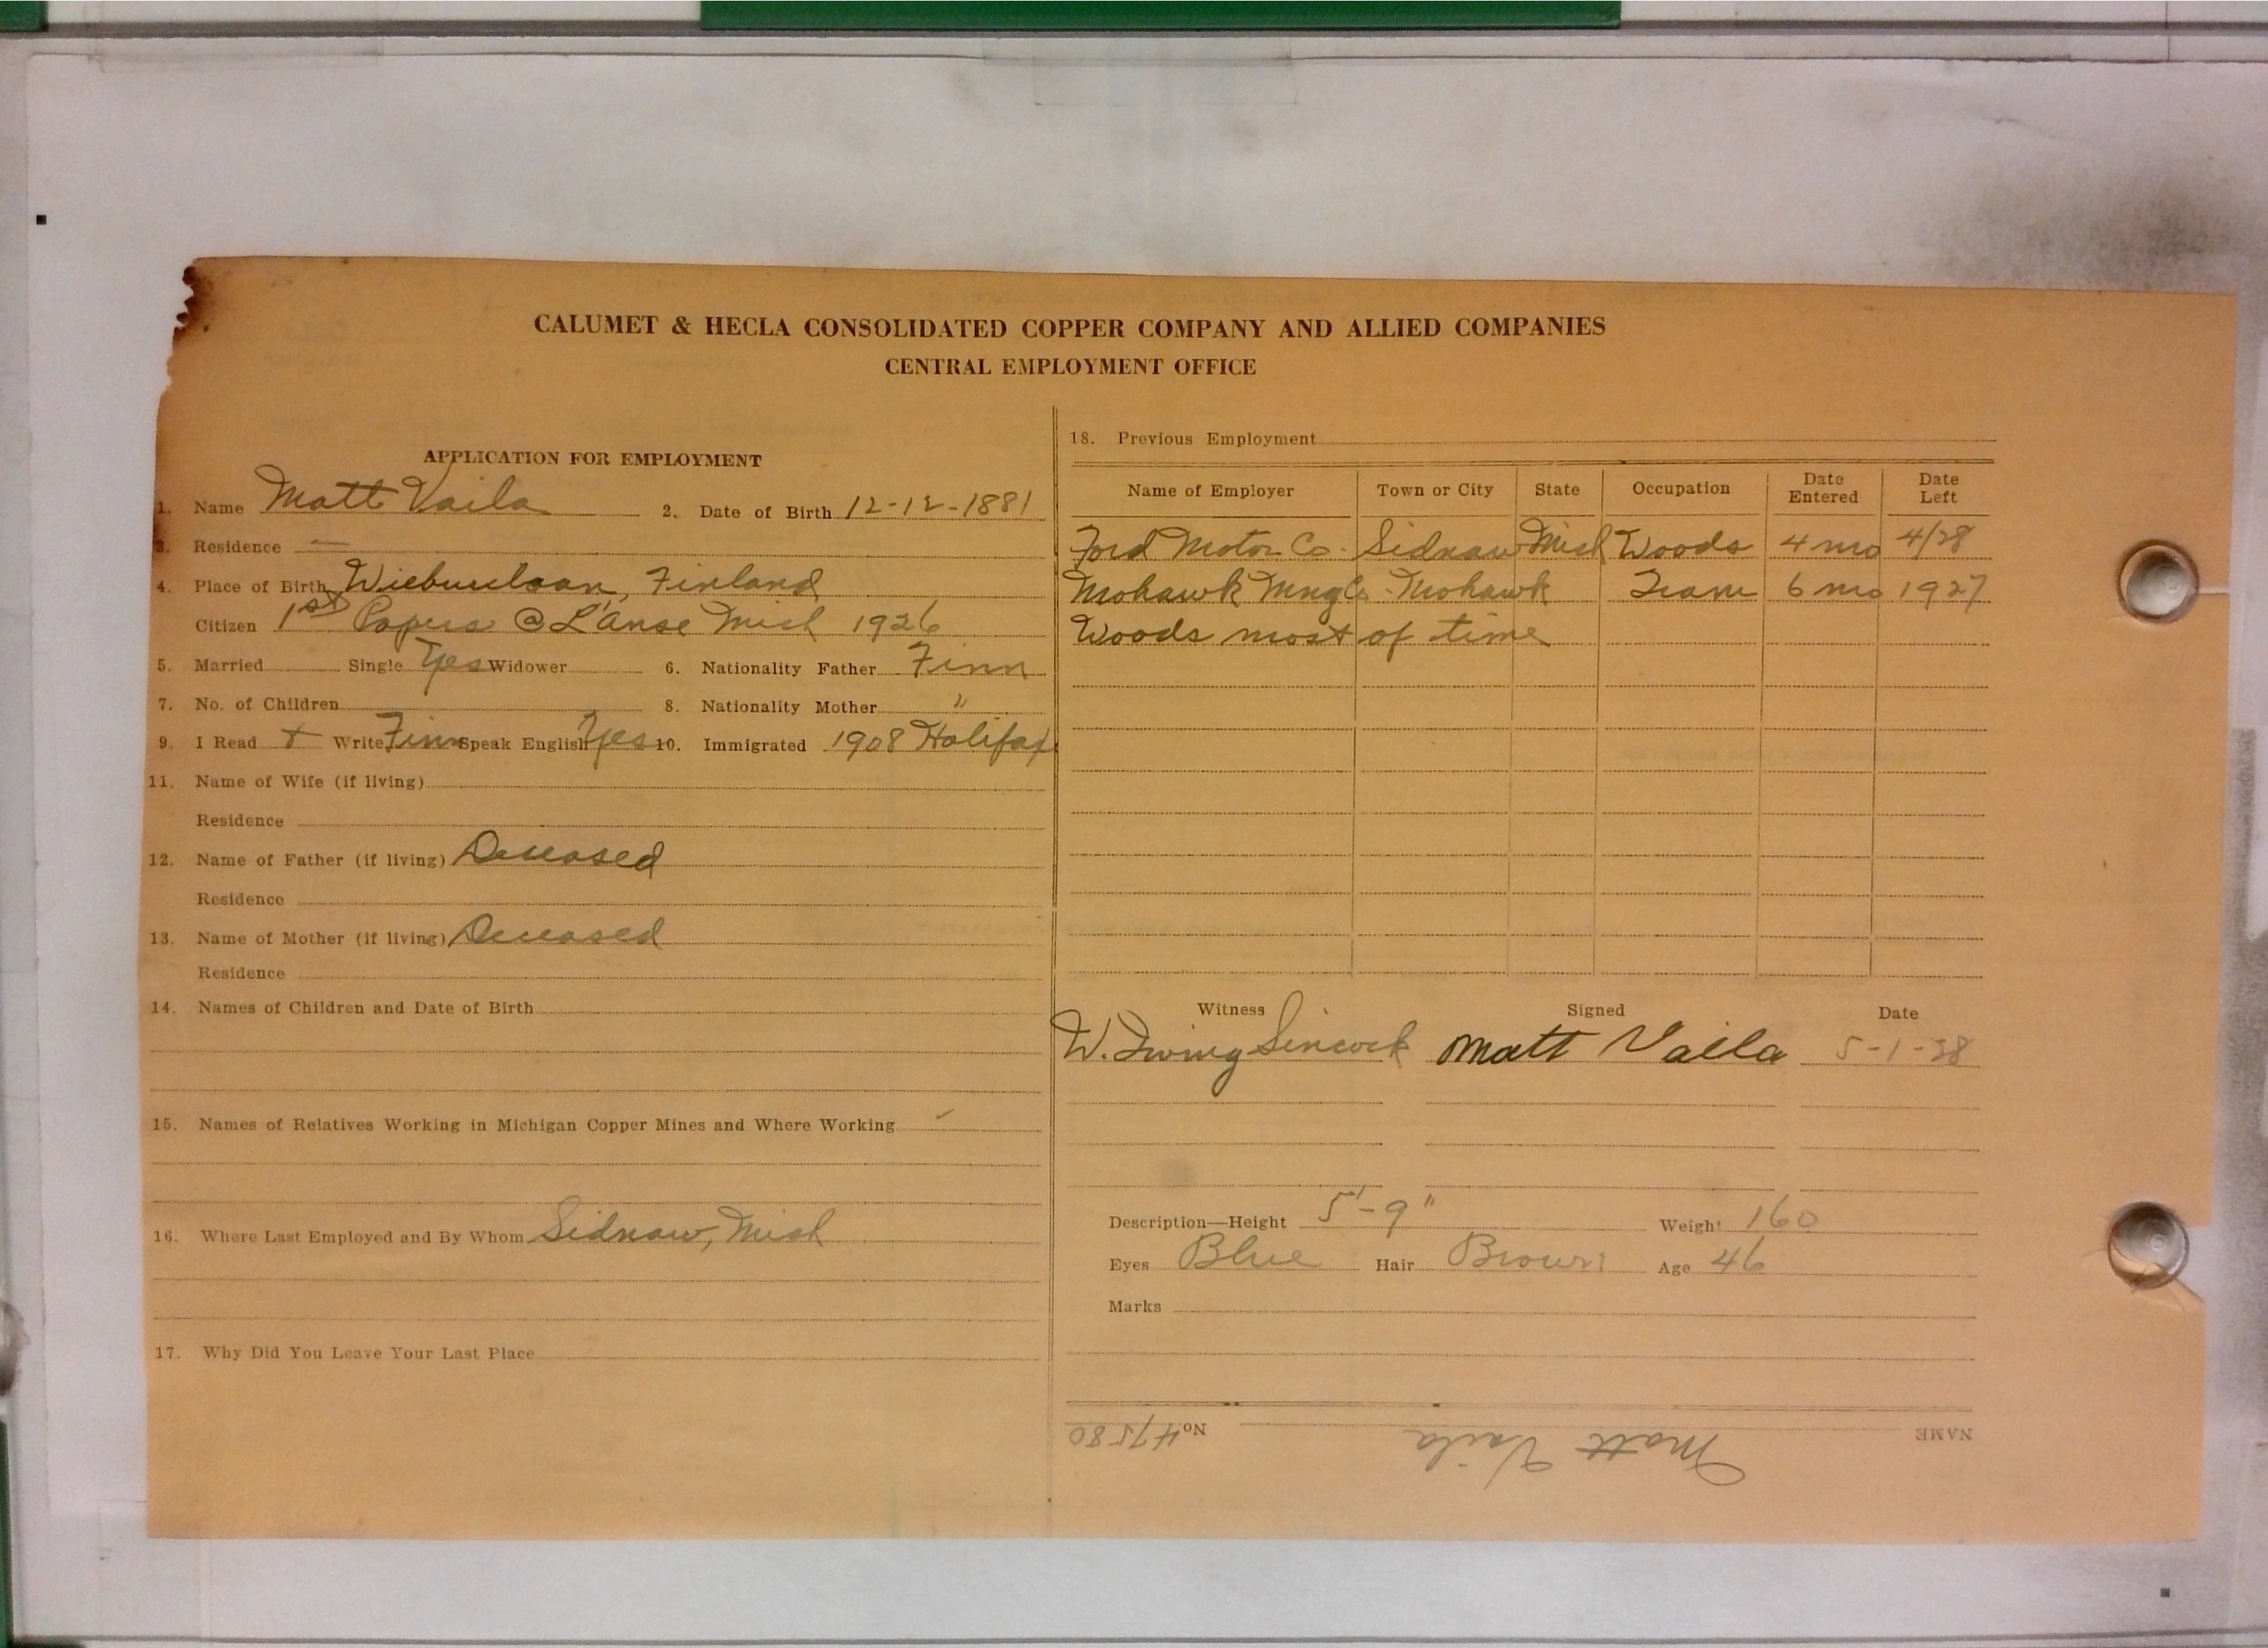 CALUMET & HECLA CONSOLIDATED COPPER COMPANY AND ALLIED COMPANIES
CENTRAL EMPLOYMENT OFFICE
APPLICATION FOR EMPLOYMENT
1. Name Matt Vaila 2. Date of Birth 12-12-1881
3. Residence —
4. Place of Birth Finland
Citizen 1st Papers @ L'Anse Mich 1926
5. Married Single Yes Widower 6. Nationality Father Finn
7. No. of Children 8. Nationality Mother "
9. I Read + Write Finn Speak English Yes 10. Immigrated 1908 Halifax
11. Name of Wife (if living)
Residence
12. Name of Father (if living) Deceased
Residence
13. Name of Mother (if living) Deceased
Residence
14. Names of Children and Date of Birth
15. Names of Relatives Working in Michigan Copper Mines and Where Working
16. Where Last Employed and By Whom Sidnaw, Mich
17. Why Did You Leave Your Last Place
18. Previous Employment
Name of Employer Town or City State Occupation Date Entered Date Left
Ford Motor Co. Sidnaw Mich Woods 4 mo 4/28
Mohawk Mng Co - Mohawk 6 mo 1927
Woods most of time
Witness Signed Date
W. Irving Sincock Matt Vaila 5-1-28
Description—Height 5'-9" Weight 160
Eyes Blue Hair Brown Age 46
Marks
NAME Matt Vaila No. 47580